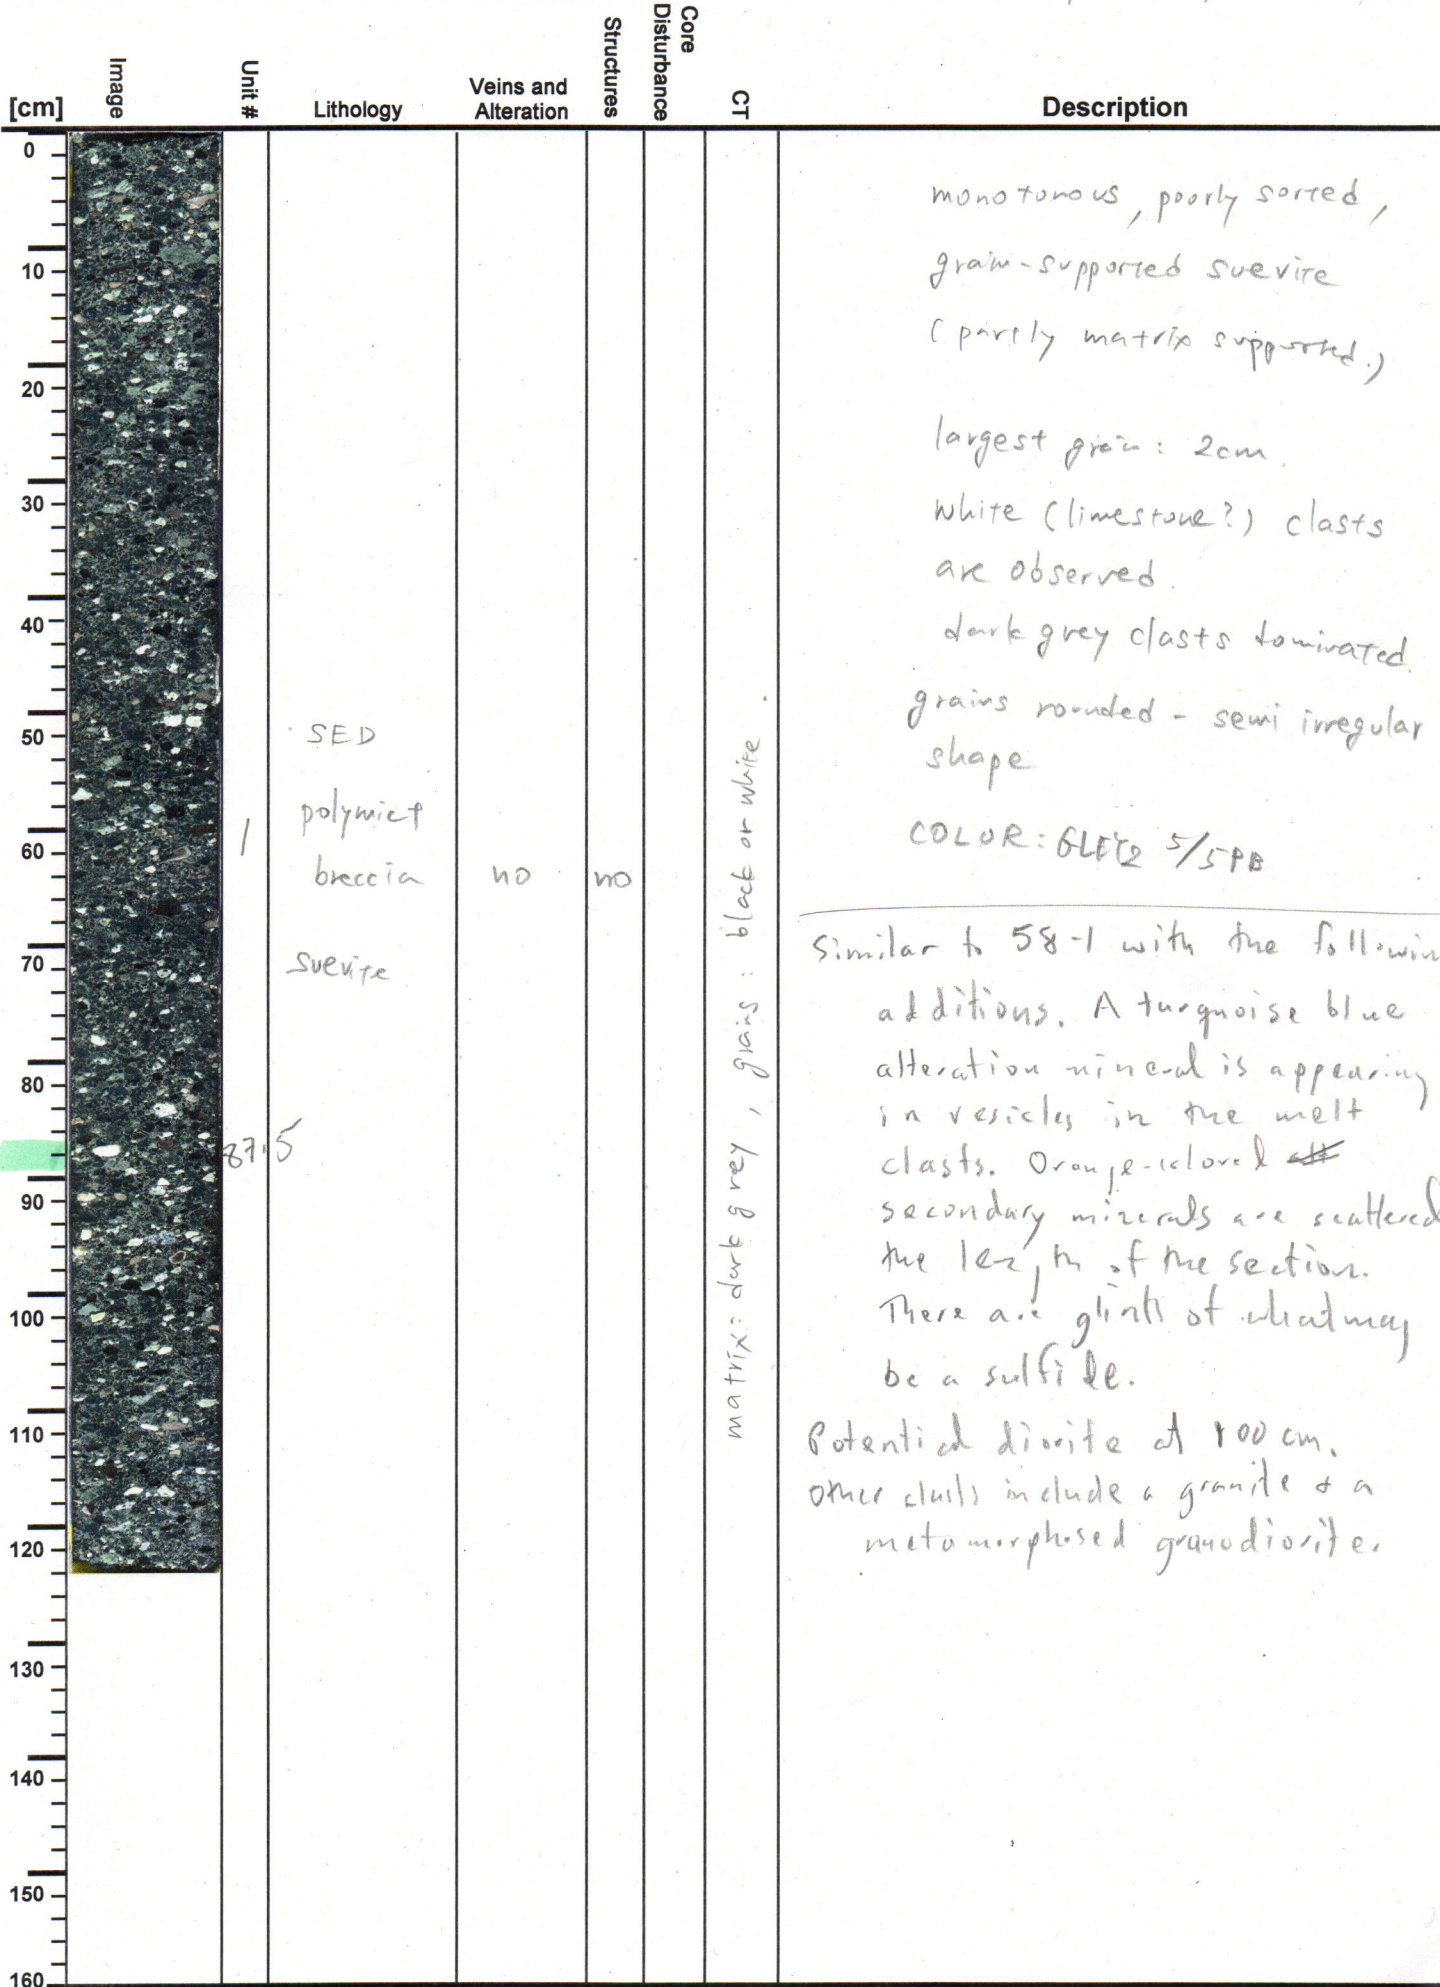 [cm]
Image
Unit #
Lithology
Veins and
Alteration
Structures
Core
Disturbance
CT
Description
0
10
20
30
40
50
60
70
80
90
100
110
120
130
140
150
160
1
87.5
SED
polymict
breccia
suevite
no
no
matrix: dark grey, grains: black or white
monotonous, poorly sorted,
grain-supported suevite
(partly matrix supported.)
largest grain: 2cm.
white (limestone?) clasts
are observed.
dark grey clasts dominated
grains rounded - semi irregular
shape
COLOR: GLEY2 5/5PB
Similar to 58-1 with the followin
additions. A turquoise blue
alteration mineral is appearing
in vesicles in the melt
clasts. Orange-colored
secondary minerals are scattered
the length of the section.
There are glints of what may
be a sulfide.
Potential diorite at 100 cm.
Other clasts include a granite & a
metamorphosed granodiorite.